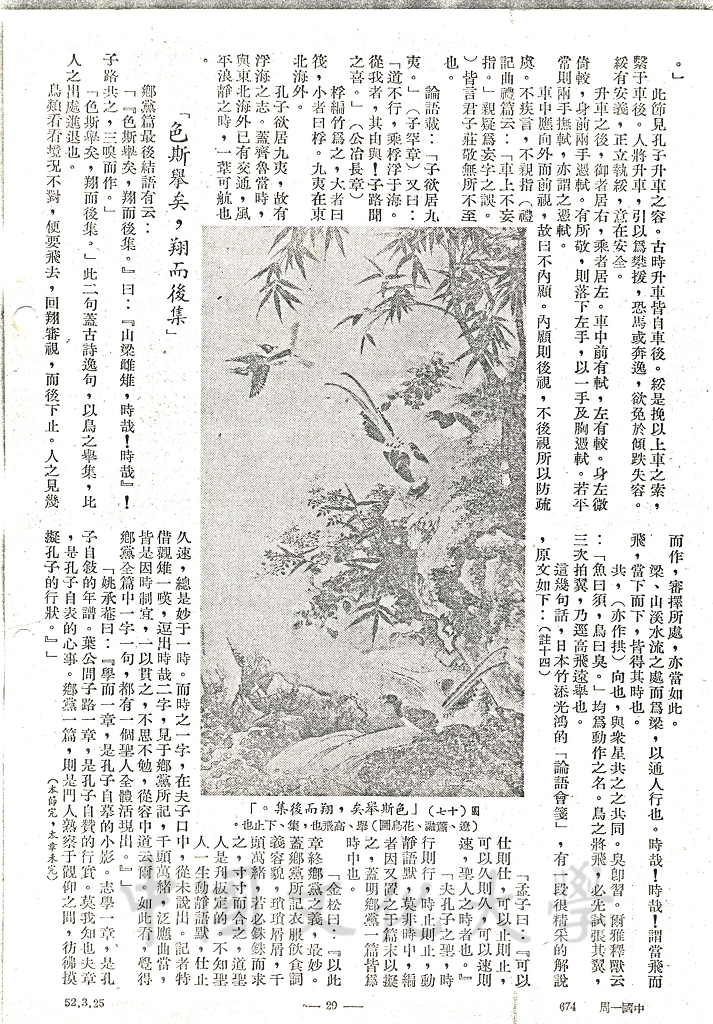 。」
此節見孔子升車之容。古時升車皆自車後。綏是挽以上車之索,
繫于車後。人將升車,引以爲攀援,恐馬或奔逸,欲免於傾跌失容。
綏有安義,正立執綏,意在安全。
升車之後,御者居右,乘者居左。車中前有軾,左有較。身左微
倚較,身前兩手憑軾。有所敬,則落下左手,以一手及胸憑軾。若平
常則兩手撫軾,亦謂之憑軾。
車中應向外而前視,故曰不內顧。內顧則後視,不後視所以防疏
虞。不疾言,不親指(禮
記曲禮篇云:「車上不妄
指。」親疑爲妄字之誤。
)皆言君子莊敬無所不至
也。
論語載:「子欲居九
夷。」(子罕章)又曰:
「道不行,乘桴浮于海。
從我者,其由與!子路聞
之喜。」(公冶長章)
桴編竹爲之,大者曰
筏,小者曰桴。九夷在東
北海外。
孔子欲居九夷,故有
浮海之志。蓋齊魯當時,
與東北海外已有交通,風
平浪靜之時,一葦可航也
「色斯舉矣,翔而後集」
鄉黨篇最後結語有云:
「『色斯舉矣,翔而後集。』曰:『山梁雌雉,時哉!時哉』!
子路共之,三嗅而作。」
「色斯舉矣,翔而後集。」此二句蓋古詩逸句,以鳥之舉集,比
人之出處進退也。
鳥類看看境況不對,便要飛去,回翔審視,而後下止。人之見幾
而作,審擇所處,亦當如此。
梁、山溪水流之處而爲梁,以通人行也。時哉!時哉!謂當飛而
飛,當下而下,皆得其時也。
共,(亦作拱)向也,與衆星共之之共同。臭卽習。爾雅釋獸云
:「魚曰須,鳥曰臭。」均爲動作之名。鳥之將飛,必先試張其翼,
三次拍翼,乃逕高飛遠舉也。
這幾句話,日本竹添光鴻的「論語會箋」,有一段很精采的解說
,原文如下:(註十四)
圖(十七)「色斯舉矣,翔而後集。」
(遼、蕭瀜、花鳥圖)舉、高飛也,集、下止也。
「孟子曰:『可以
仕則仕,可以止則止,
可以久則久,可以速則
速,聖人之時者也。』
「夫孔子之聖,時
行則行,時止則止,動
靜語默,莫非時中,編
者因又置之于篇末以擬
之,蓋明鄉黨一篇皆爲
時中也。
「金松曰:『以此
章終鄉黨之義,最妙。
蓋鄉黨所記衣服飲食詞
義容貌,瑣瑣屑屑,千
頭萬緒,若必銖銖而求
之,寸寸而合之,道聖
人是刋板定的。不知聖
人一生動靜語默,仕止
久速,總是妙于一時。而時之一字,在夫子口中,從未說出。記者特
借觀雉一嘆,逗出時哉二字,見于鄉黨所記,千頭萬緒,泛應曲當,
皆是因時制宜,一以貫之,不思不勉,從容中道云爾。如此看,覺得
鄉黨全篇中一字一句,都有一個聖人全體活現出。』」
「姚承菴曰:『學而一章,是孔子自摹的小影。志學一章,是孔
子自敍的年譜。葉公問子路一章,是孔子自贊的行實。莫我知也夫章
,是孔子自表的心事。鄉黨一篇,則是門人熟察于觀仰之間,彷彿摸
擬孔子的行狀。』」
(本節完,本章未完)
52,3,25
— 29 —
674
中國一周
中國文化大學